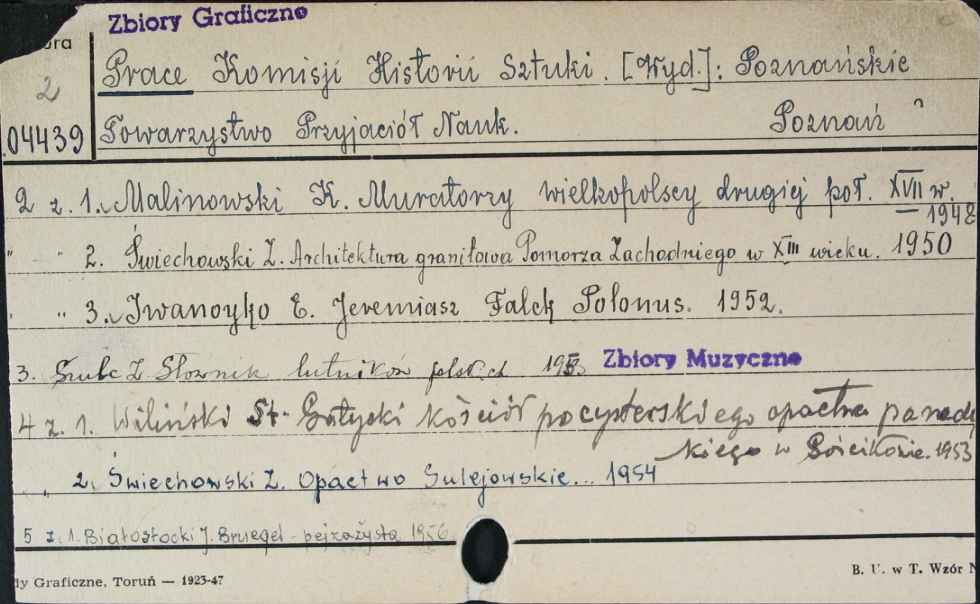 Zbiory Graficzne
ura
2
04439
Prace Komisji Historii Sztuki. [Wyd.]: Poznańskie
Towarzystwo Przyjaciół Nauk. Poznań
2 z. 1. Malinowski K. Muratorzy wielkopolscy drugiej poł. XVII w.
— 1948
" " 2. Świechowski Z. Architektura granitowa Pomorza Zachodniego w XIII wieku. 1950
" " 3. Iwanoyko E. Jeremiasz Falck Polonus. 1952.
3. Szulc Z. Słownik lutników polskich 1953 Zbiory Muzyczne
4 z. 1. Wiliński St. Gotycki kościół pocysterskiego opactwa parady
kiego w Gościkowie. 1953
" 2. Świechowski Z. Opactwo Sulejowskie... 1954
5 z. 1. Białostocki J. Bruegel - pejzażysta 1956
dy Graficzne, Toruń — 1923-47
B. U. w T. Wzór N